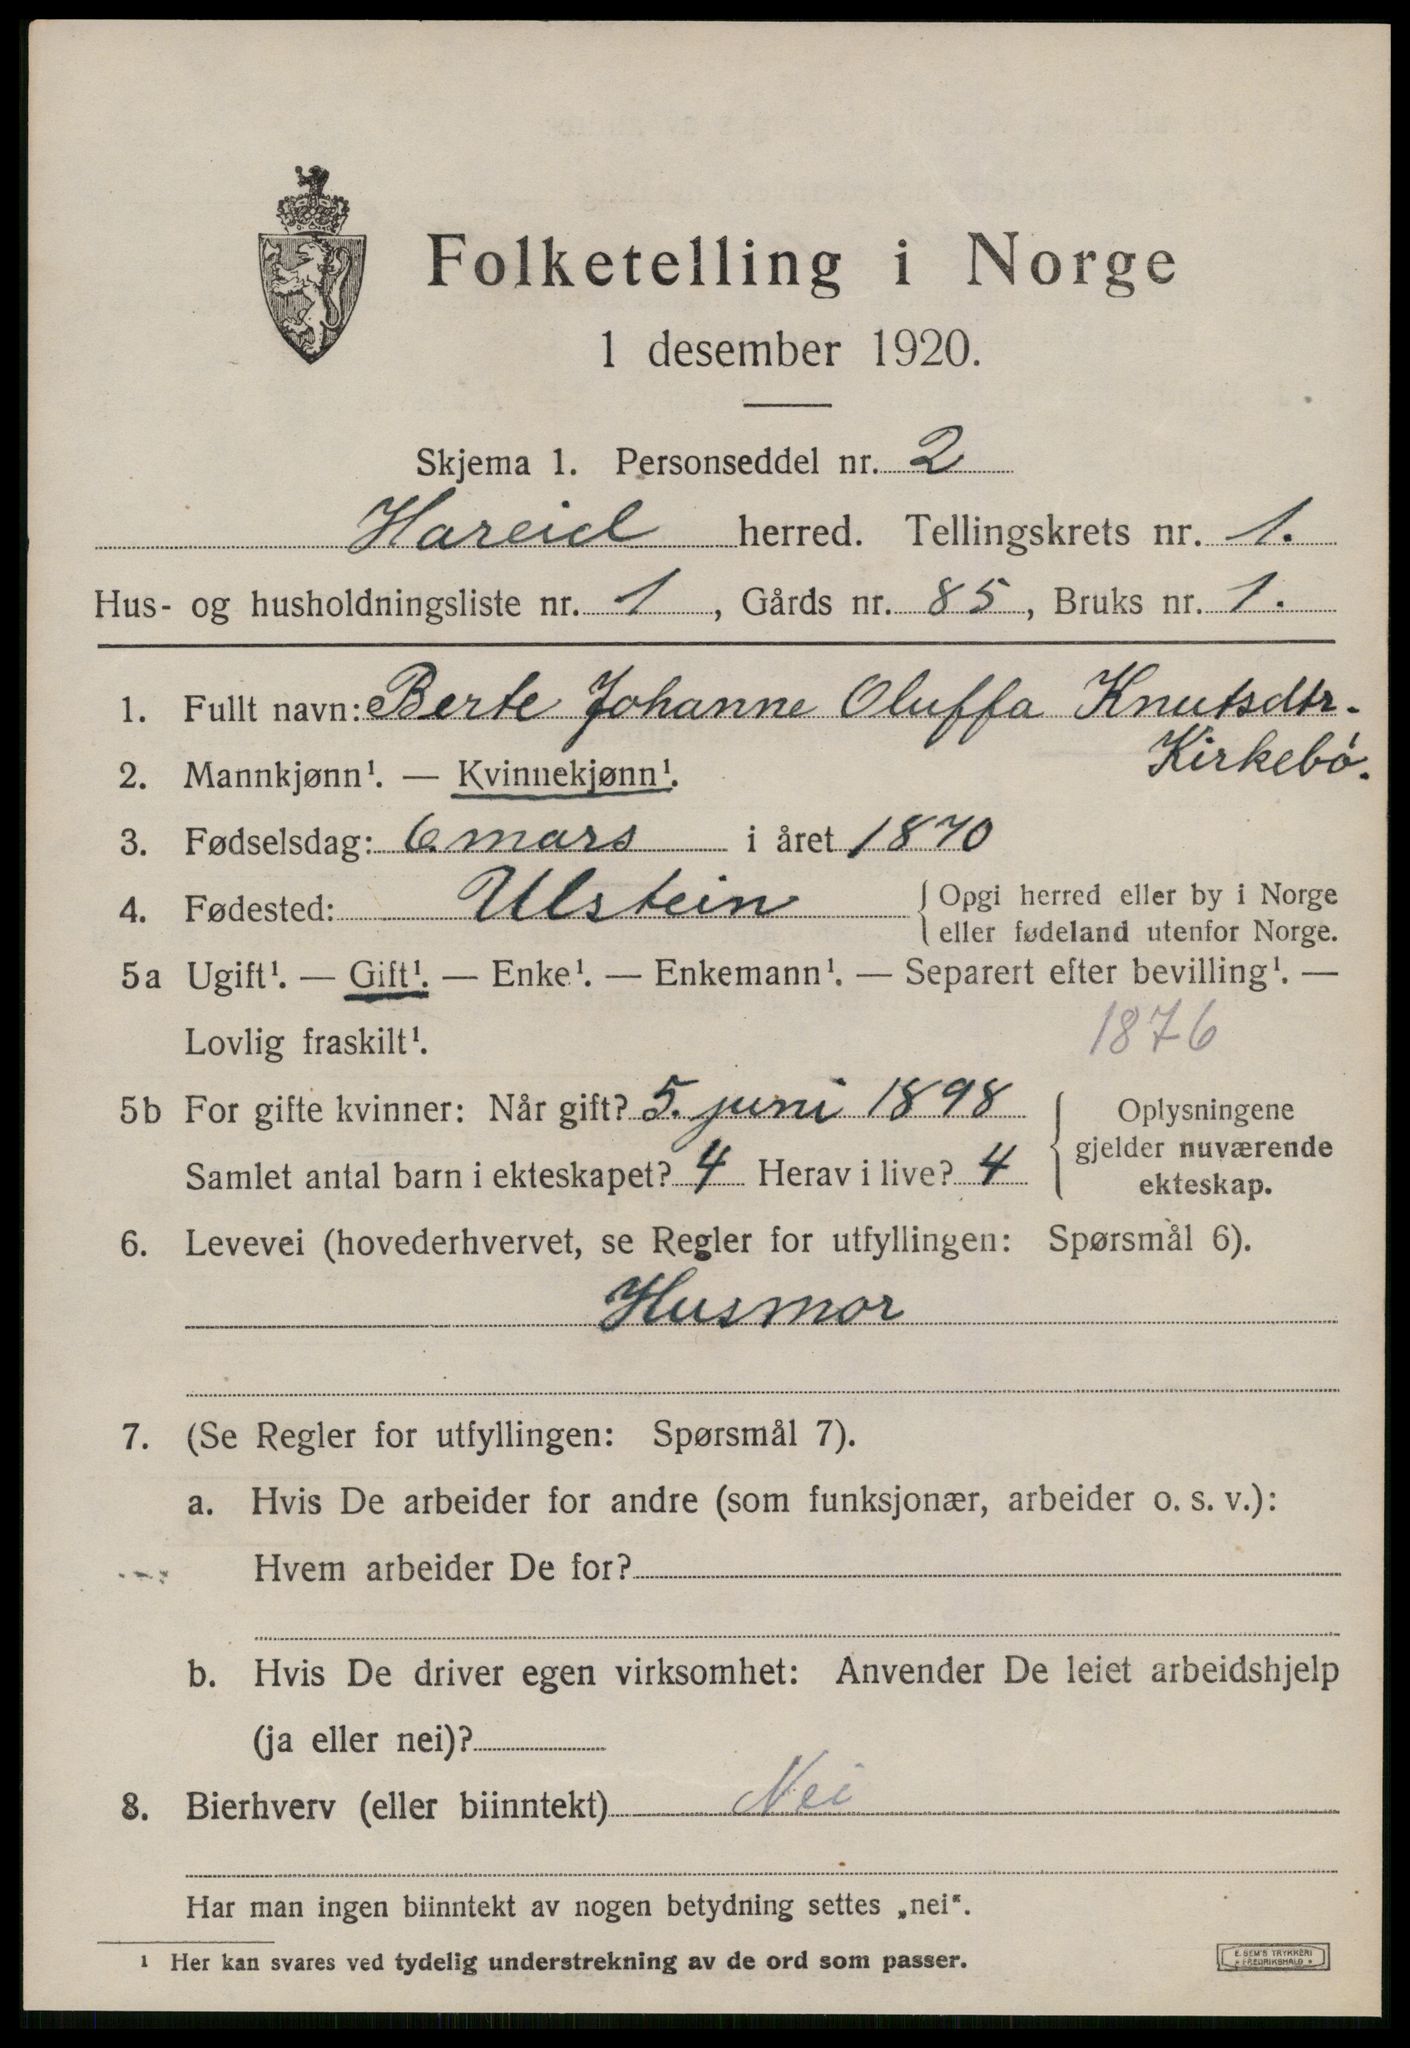 Folketelling i Norge
1 desember 1920.
Skjema 1. Personseddel nr. 2
Hareid herred. Tellingskrets nr. 1.
Hus- og husholdningsliste nr. 1, Gårds nr. 85, Bruks nr. 1.
1. Fullt navn: Berte Johanne Oluffa Knutsdtr.
Kirkebö.
2. Mannkjønn¹. — Kvinnekjønn¹.
3. Fødselsdag: 6. mars i året 1870
4. Fødested: Ulstein { Opgi herred eller by i Norge
eller fødeland utenfor Norge.
5a Ugift¹. — Gift¹. — Enke¹. — Enkemann¹. — Separert efter bevilling¹. —
Lovlig fraskilt¹. 1876
5b For gifte kvinner: Når gift? 5. juni 1898 { Oplysningene
gjelder nuværende
ekteskap.
Samlet antal barn i ekteskapet? 4 Herav i live? 4
6. Levevei (hovederhvervet, se Regler for utfyllingen: Spørsmål 6).
Husmor
7. (Se Regler for utfyllingen: Spørsmål 7).
a. Hvis De arbeider for andre (som funksjonær, arbeider o. s. v.):
Hvem arbeider De for?
b. Hvis De driver egen virksomhet: Anvender De leiet arbeidshjelp
(ja eller nei)?
8. Bierhverv (eller biinntekt) Nei
Har man ingen biinntekt av nogen betydning settes „nei“.
¹ Her kan svares ved tydelig understrekning av de ord som passer.
E. SEM'S TRYKKERI
* FREDRIKSHALD *